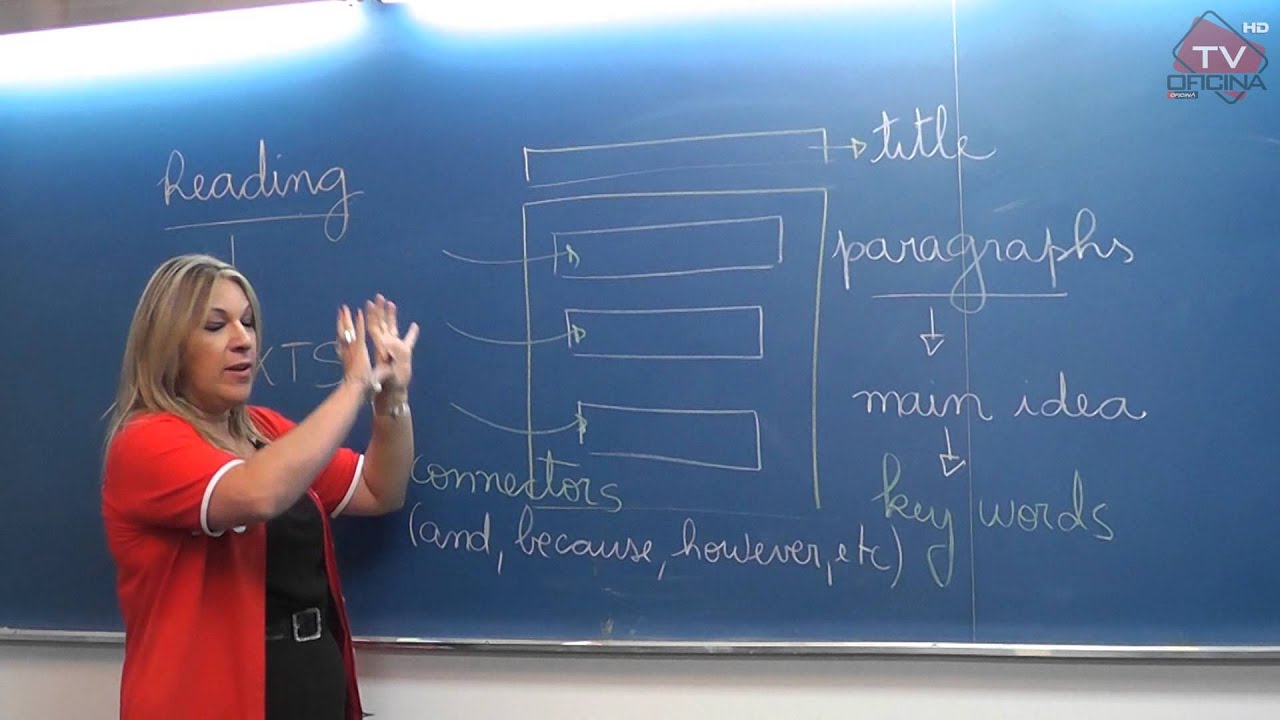 Reading
title
paragraphs
main idea
key words
connectors
(and, because, however, etc)
HD
TV
OFICINA
OFICINA